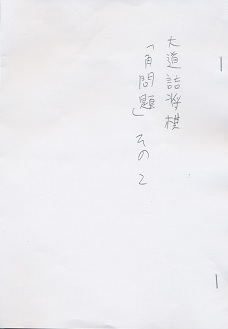 大道詰将棋
「角問題」その2